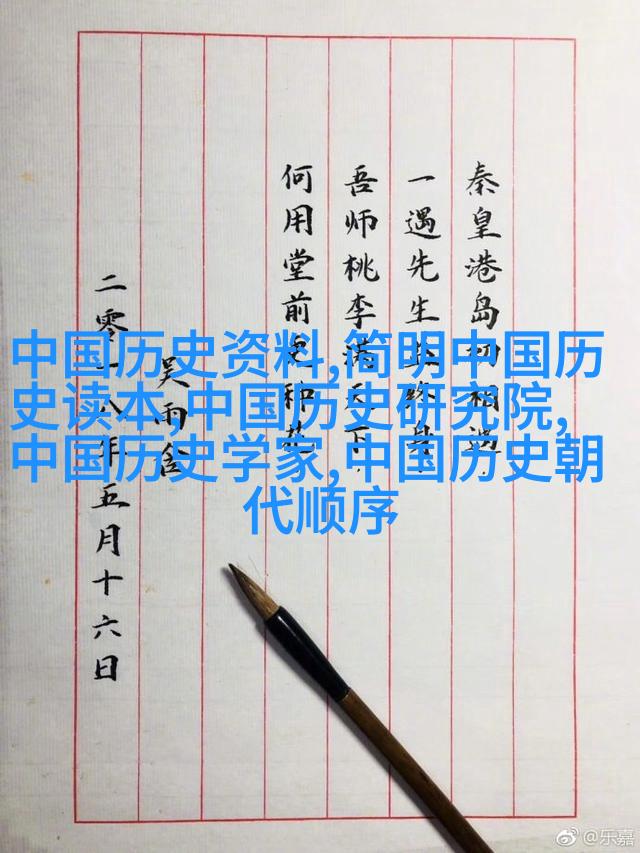 秦皇港岛初相遇
一遇先生终身
吾师桃李满天下
何用堂前更种花
吴雨
二零一八年五月十六日
中国历史资料,简明中国历
史读本,中国历史研究院,
中国历史学家,中国历史朝
代顺序
@乐嘉